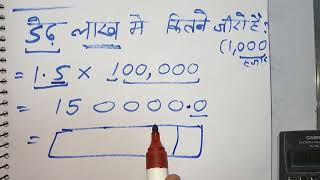 डेढ़ लाख मे कितने जीरो है?
(1,000
हजार
= 1.5 × 100,000
= 150000.0
=
CASIO